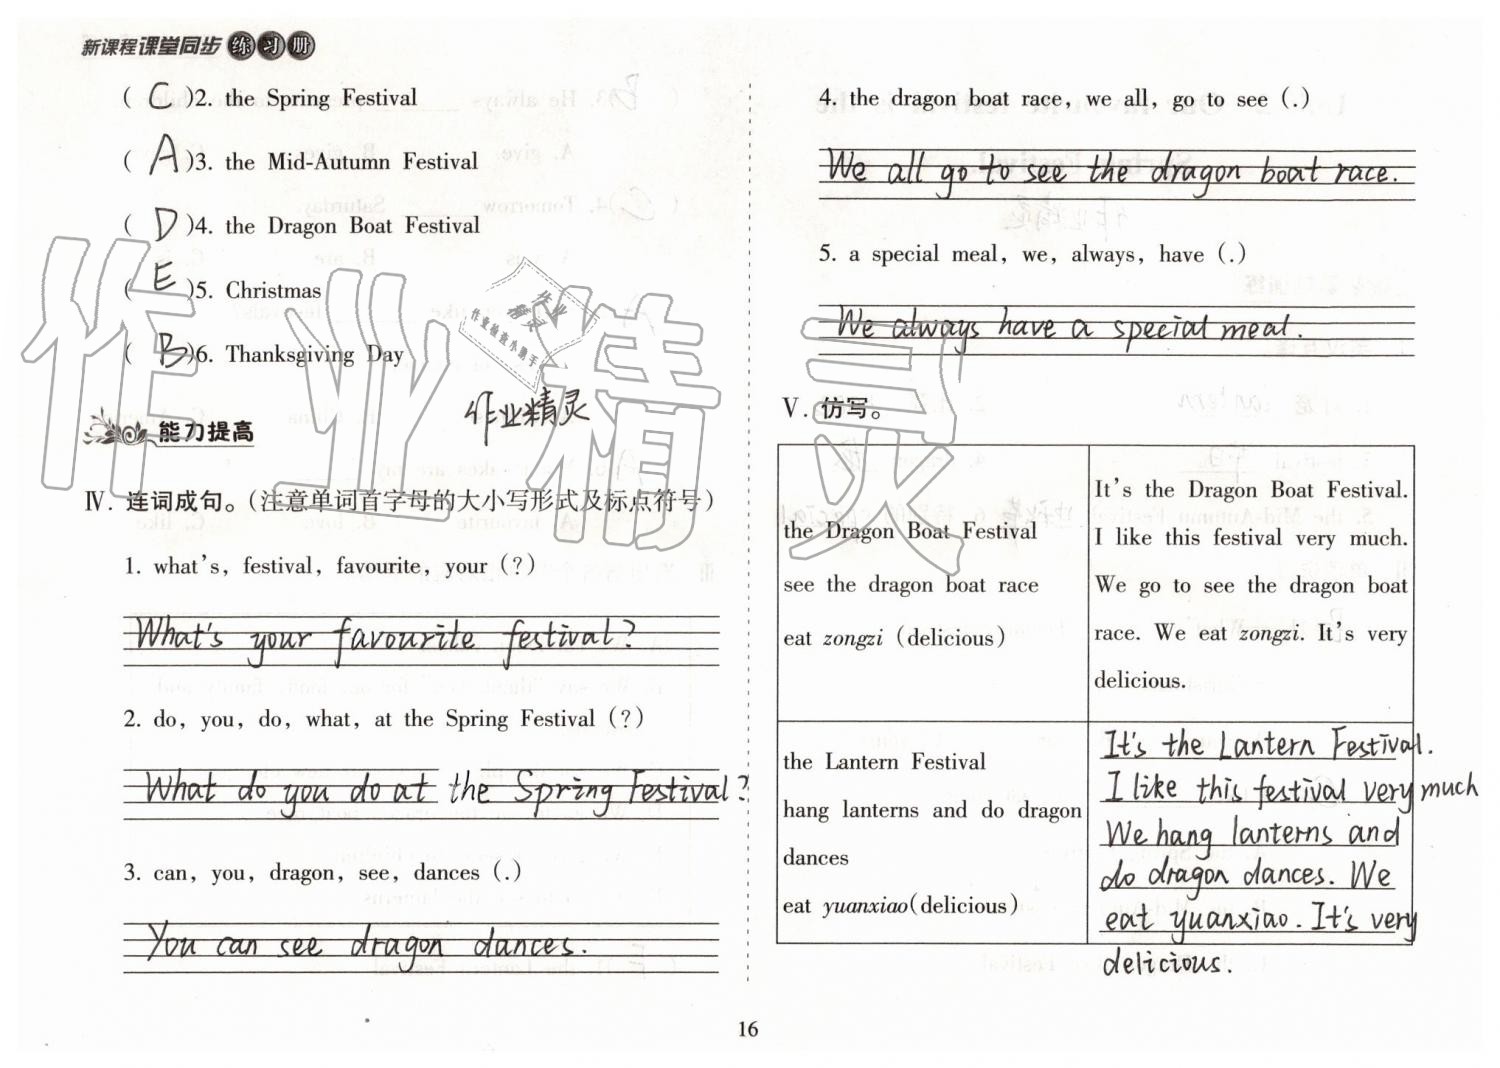 新课程课堂同步练习册
( C )2. the Spring Festival
( A )3. the Mid-Autumn Festival
( D )4. the Dragon Boat Festival
( E )5. Christmas
( B )6. Thanksgiving Day
作业精灵
能力提高
Ⅳ. 连词成句。(注意单词首字母的大小写形式及标点符号)
1. what's, festival, favourite, your (?)
What's your favourite festival?
2. do, you, do, what, at the Spring Festival (?)
What do you do at the Spring Festival?
3. can, you, dragon, see, dances (.)
You can see dragon dances.
4. the dragon boat race, we all, go to see (.)
We all go to see the dragon boat race.
5. a special meal, we, always, have (.)
We always have a special meal.
Ⅴ. 仿写。
the Dragon Boat Festival
see the dragon boat race
eat zongzi (delicious)
It's the Dragon Boat Festival.
I like this festival very much.
We go to see the dragon boat
race. We eat zongzi. It's very
delicious.
the Lantern Festival
hang lanterns and do dragon
dances
eat yuanxiao(delicious)
It's the Lantern Festival.
I like this festival very much
We hang lanterns and
do dragon dances. We
eat yuanxiao. It's very
delicious.
16
作业精灵
作业
精灵
作业检查小助手